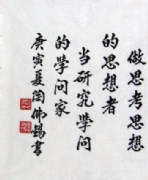 做思考思想
的思想者
当研究学问
的学问家
庚寅夏陶佛锡书